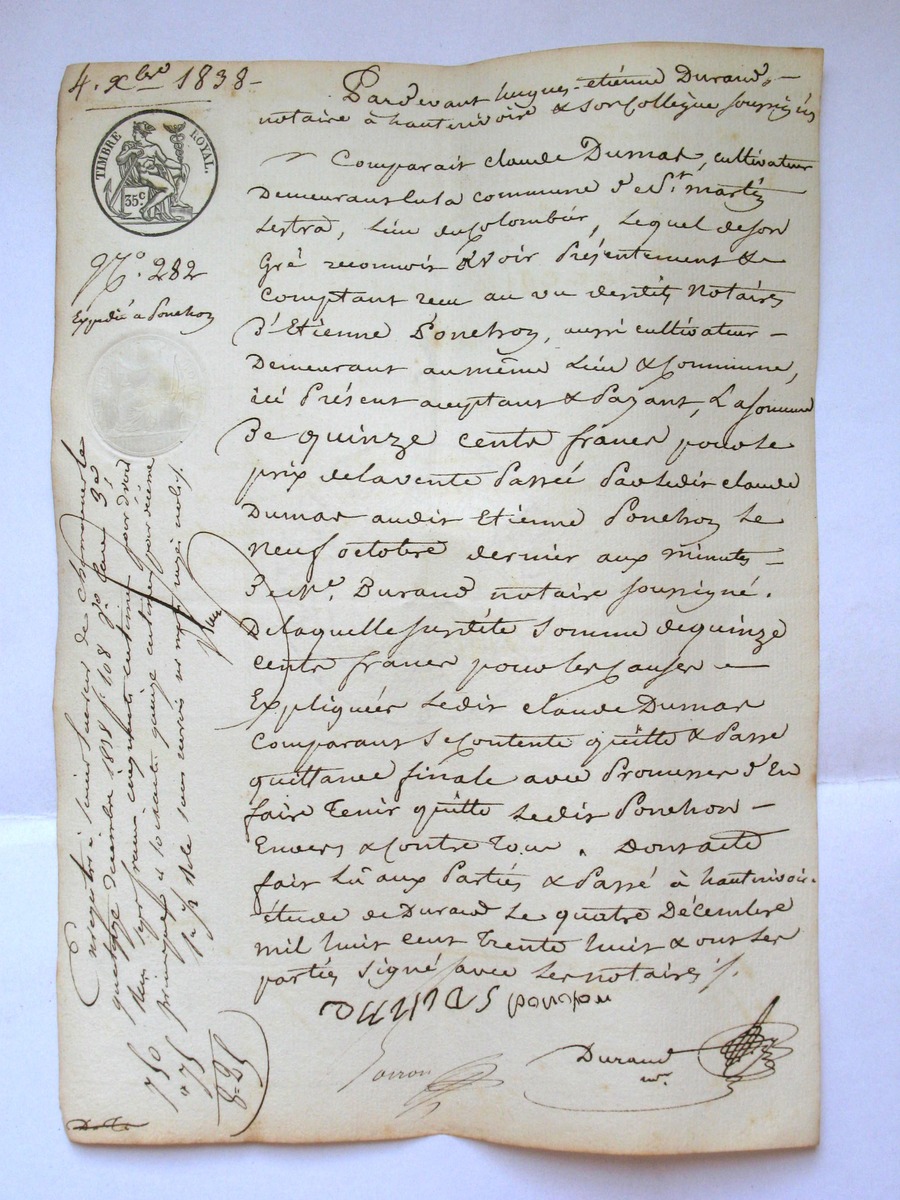 4. xbre 1838 -
TIMBRE ROYAL.
35 c.
No. 282
Expédié à Ponchon
Pardevant hugues-etiénne Durand, -
notaire à hautrivoire & son Collegue soussignés
Comparait claude Dumas, cultivateur
Demeurant en la commune de St. martin
Lestra, Lieu du Colombier, Lequel de son
Gré reconnoit avoir Présentement &
Comptant recu au vu desdits Notaires
D'Etienne Ponchon, aussi cultivateur -
Demeurant au même Lieu & Commune,
ici Présent acceptant & Payant, La somme
De quinze cents francs pour le
prix de la vente Passée Par ledit claude
Dumas audit Etienne Ponchon Le
neuf octobre dernier aux minutes -
De Me. Durand notaire soussigné.
De laquelle susdite somme de quinze
cents francs pour les causes -
Expliquées Ledit claude Dumas
Comparant Se Contente quitte & Passe
quittance finale avec Promesses d'En
faire Tenir quitte Ledit Ponchon -
Envers & Contre Tous. Dont acte
fait Lû aux Parties & Passé à hautrivoire
étude de Durand Le quatre Décembre
mil huit cent Trente huit & ont Les
parties signé avec Les notaires ./.
ponchon DUMAS
Durand
nre.
Enregistré à Saint
quatorze décembre 1838 fo. 108
sept francs cinquante centimes pour droit
principal & soixante quinze centimes pour décime
7 50
" 75
8-25